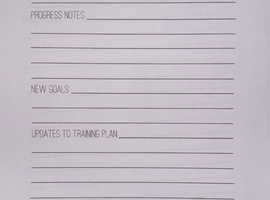 PROGRESS NOTES
NEW GOALS
UPDATES TO TRAINING PLAN